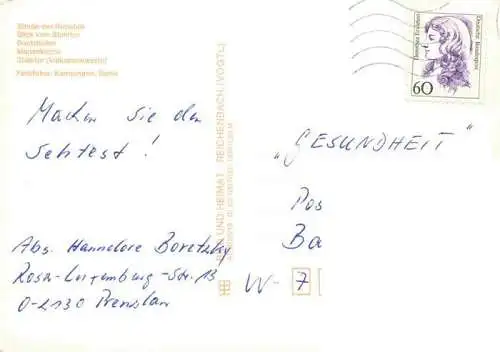 Straße der Republik
Blick vom Stadttor
Marienkirche
Machen Sie den
Sehtest!
Abs. Hannelore Boretzky
Rosa-Luxemburg-Str. 13
O-2130 Prenzlau
BILD UND HEIMAT REICHENBACH (VOGTL)
Dorothea Erxleben
Deutsche Bundespost
60
„GESUNDHEIT"
Pos
Ba
W- 7